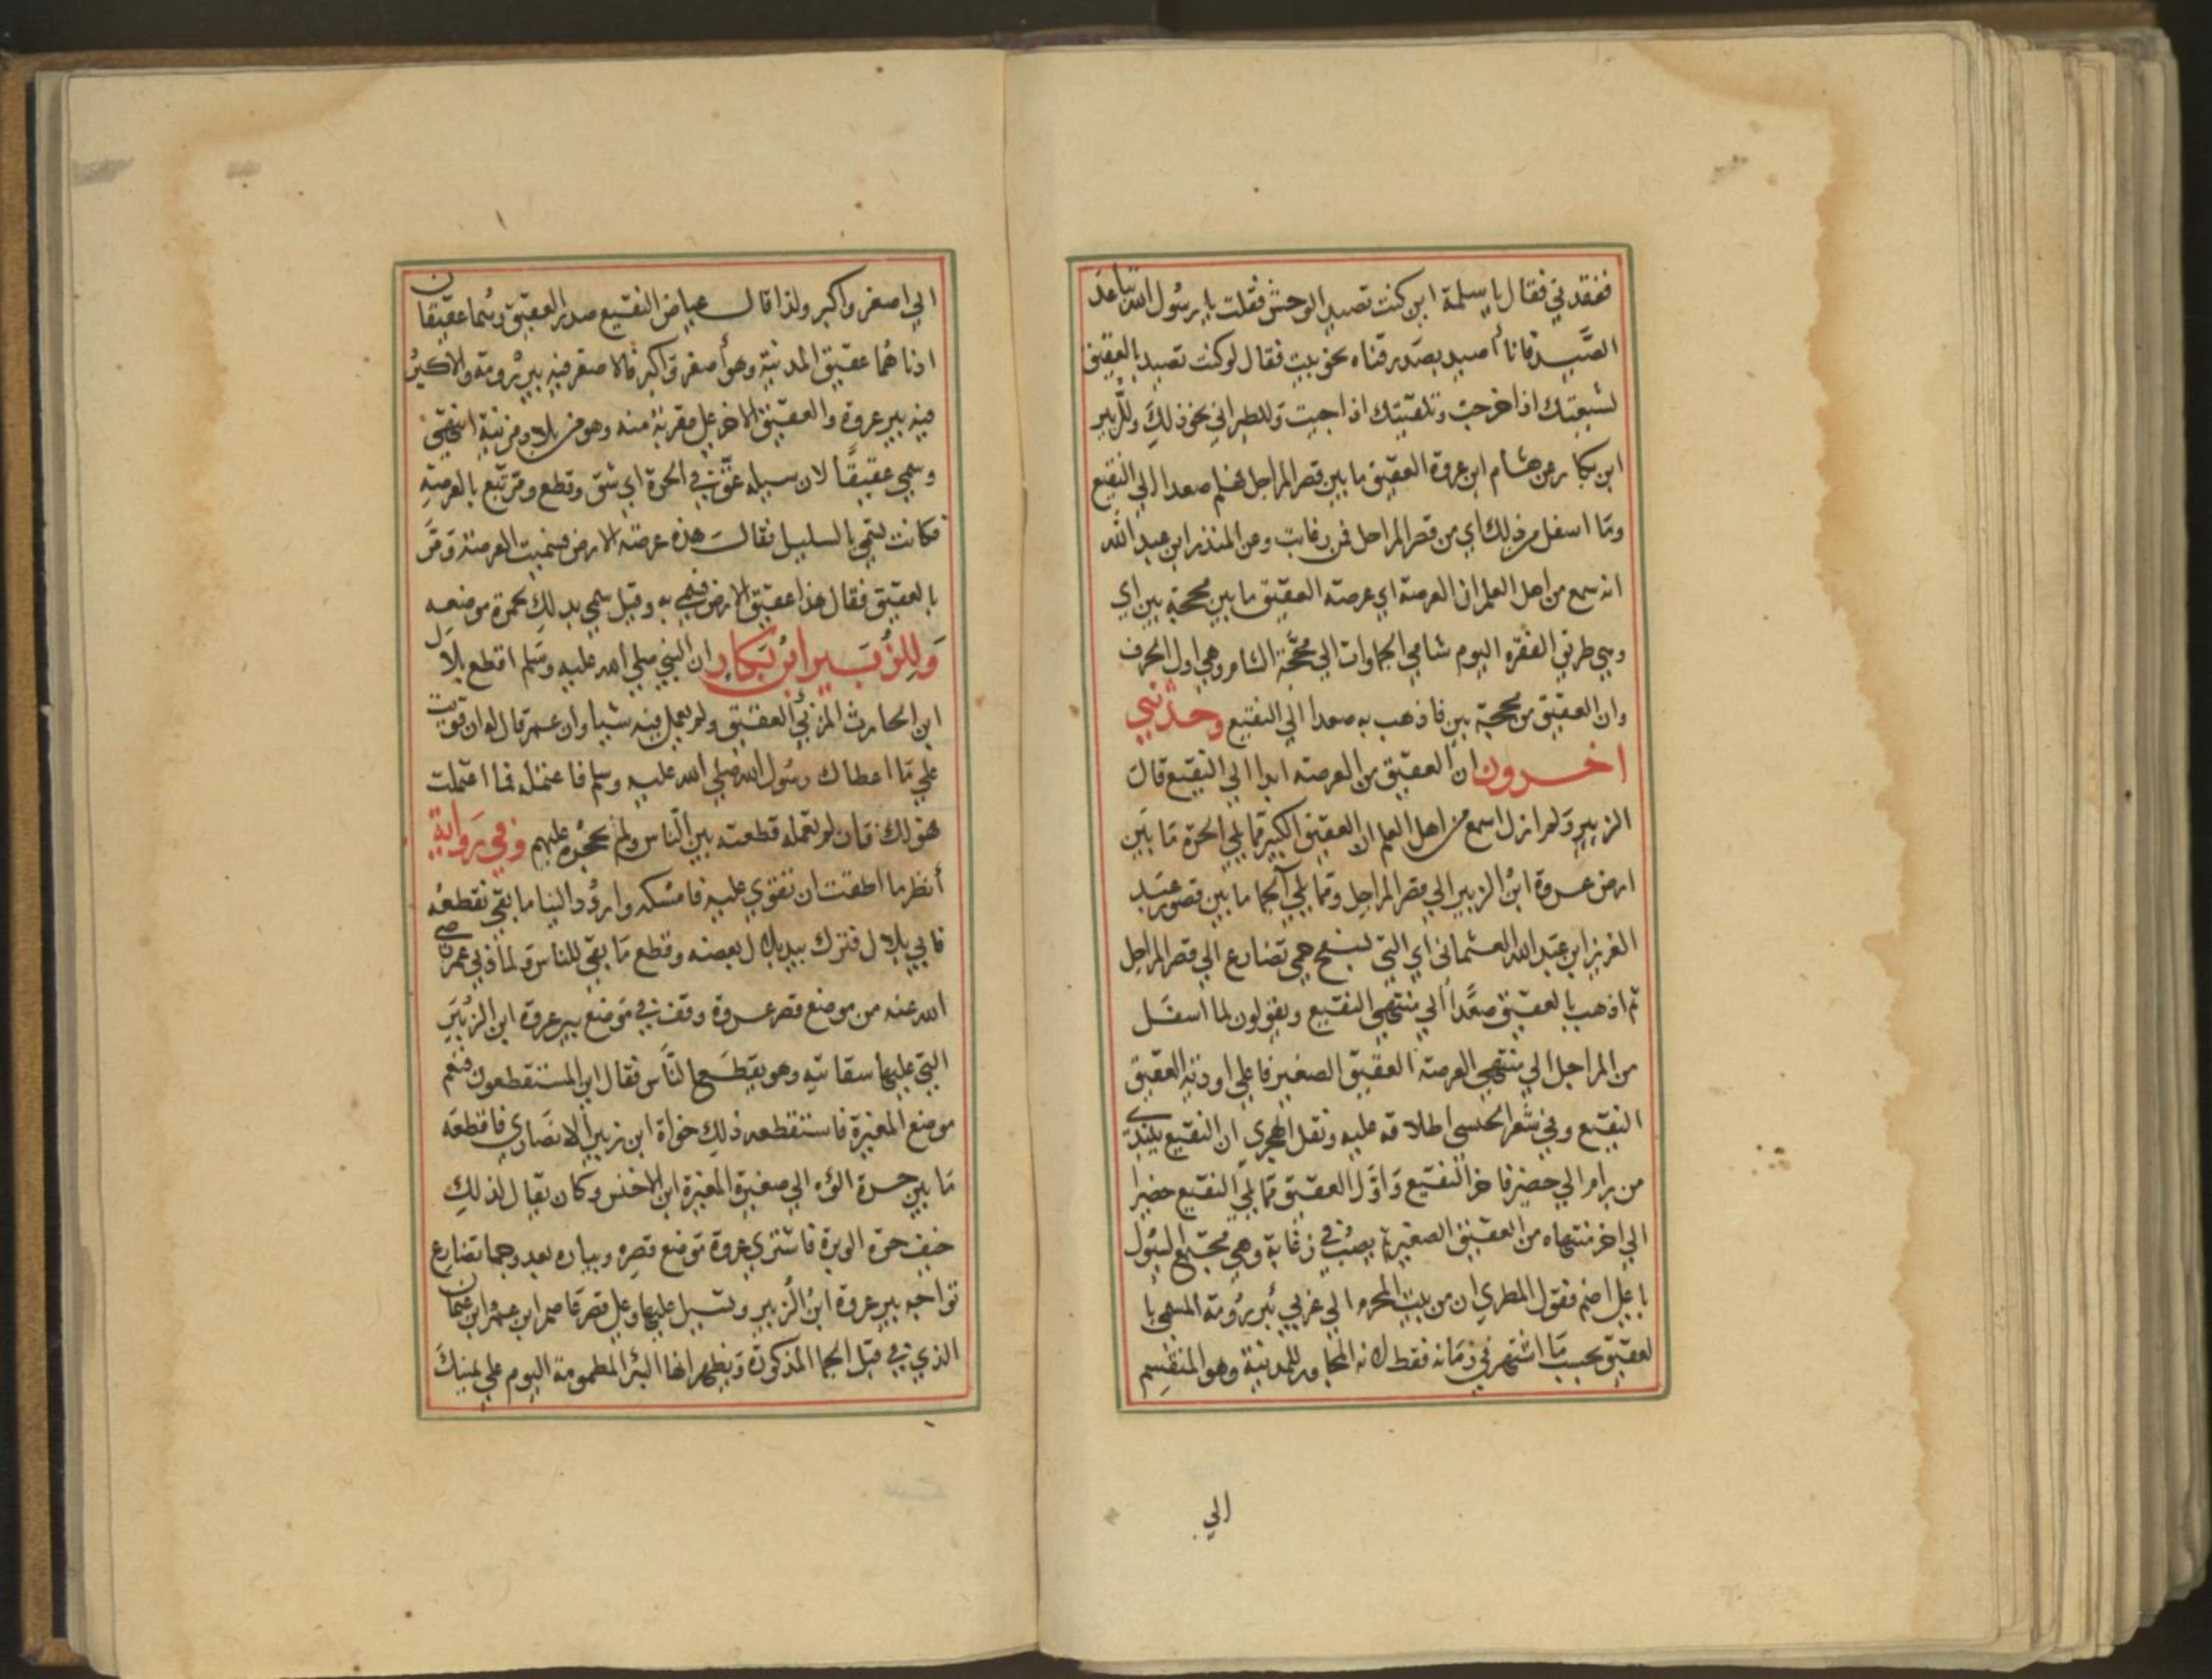 ففقدني فقال يا سلمة اين كنت تصيد الوحش فقلت يا رسول الله تباعد
الصَّيد فانا أصيد بصدر قناه نحو بيت فقال لو كنت تصيد بالعقيق
لشيعتك اذا خرجت وتلقيتك اذا جيت وللطبراني نحو ذلك وللزبير
ابن بكار عن هشام ابن عروة العقيق ما بين قصر المراجل فهلم صعدا الي النقيع
وما اسفل من ذلك اي من قصر المراجل فمن زغابة وعن المنذر ابن عبد الله
انه سمع من اهل العلم ان العرصة اي عرصة العقيق ما بين محجة يين اي
وهي طريق الفقره اليوم شامي الجماوات الي محجة الشام وهي اول الجرف
وان العقيق من محجة يين فاذهب به صعدا الي النقيع وحدثني
اخرون ان العقيق من العرصه ابدا الي النقيع قال
الزبير ولم ازل اسمع من اهل العلم ان العقيق الكبير مما يلي الحرة ما بين
ارض عروة ابن الزبير الي قصر المراجل ومما يلي الجما ما بين قصور عبد
العزيز ابن عبد الله العثماني اي التي لسفح هي تضارع الي قصر المراجل
ثم اذهب بالعقيق صعَّداً الي منتهي النقيع ويقولون لما اسفل
من المراجل الي منتهي العرصة العقيق الصغير فاعلي اودية العقيق
النقيع وفي شعر اطلاقه عليه ونقل الهجري ان النقيع يبتدي
من برام الي حضير فاخر النقيع واول العقيق مما يلي النقيع حضير
الي اخر منتهاه من العقيق الصغير ثم يصب في زغابة وهي مجتمع السيول
باعلا اضم فقول المطري ان من بيت المحرم الي غربي بئر رومة المسمي با
لعقيق بحسب ما اشتهر في زمانه فقط لانه المجاور للمدينة وهو المنقسم
الي
الي اصغر واكبر ولذا قال عياض النقيع صدر العقيق وهما عقيقان
ادناهما عقيق المدينة وهو أصغر واكبر فالاصغر فيه بير رومة والاكبر
فيه بير عروة والعقيق الاخر علي مقربة منه وهو من بلاد مزنية انتهي
وسمي عقيقاً لان سيله عق في الحرة اي شق وقطع ومر تبع بالعرصة
فكانت تسمي بالسليل فقال هذه عرصة الارض فسميت العرصة ومر
بالعقيق فقال هذا عقيق الارض فسمي به وقيل سمي بذلك لحمرة موضعه
وَللزُبَير ابْن بَكار ان النبي صلي الله عليه وسلم اقطع بلال
ابن الحارث المزني العقيق ولم يعمل فيه شيا وان عمر قال له ان قويت
علي ما اعطاك رسول الله صلي الله عليه وسلم فاعتمله فما اعتملت
فهو لك فان لم تعمله قطعته بين الناس ولم تحجره عليهم وفي رواية
أنظر ما اطقت ان تقوي عليه فامسكه واردُد الينا ما بقي نقطعه
فابي بلال فترك بيد بلال بعضه وقطع ما بقي للناس ولما دني عمر رضي
الله عنه من موضع قصر عروة وقف في موضع بير عروة ابن الزبير
التي عليها سقايته وهو يقطعها الناس فقال اين المستقطعون فنعم
موضع المغيرة فاستقطعه ذلك خوات ابن زبير الانصاري فاقطعه
ما بين حرة الي صغيرة المغيرة ابن الاخنس وكان يقال لذلك
خيف حرة الوبرة فاشتري عروة موضع قصره وبياره بعد وجما تضارع
تواجه بير عروة ابن الزبير وتسيل عليها وعلي قصر عاصم ابن عمر وابن عثمان
الذي في قبل الجما المذكورة ويظهر انها البئر المطمومة اليوم علي يمينك